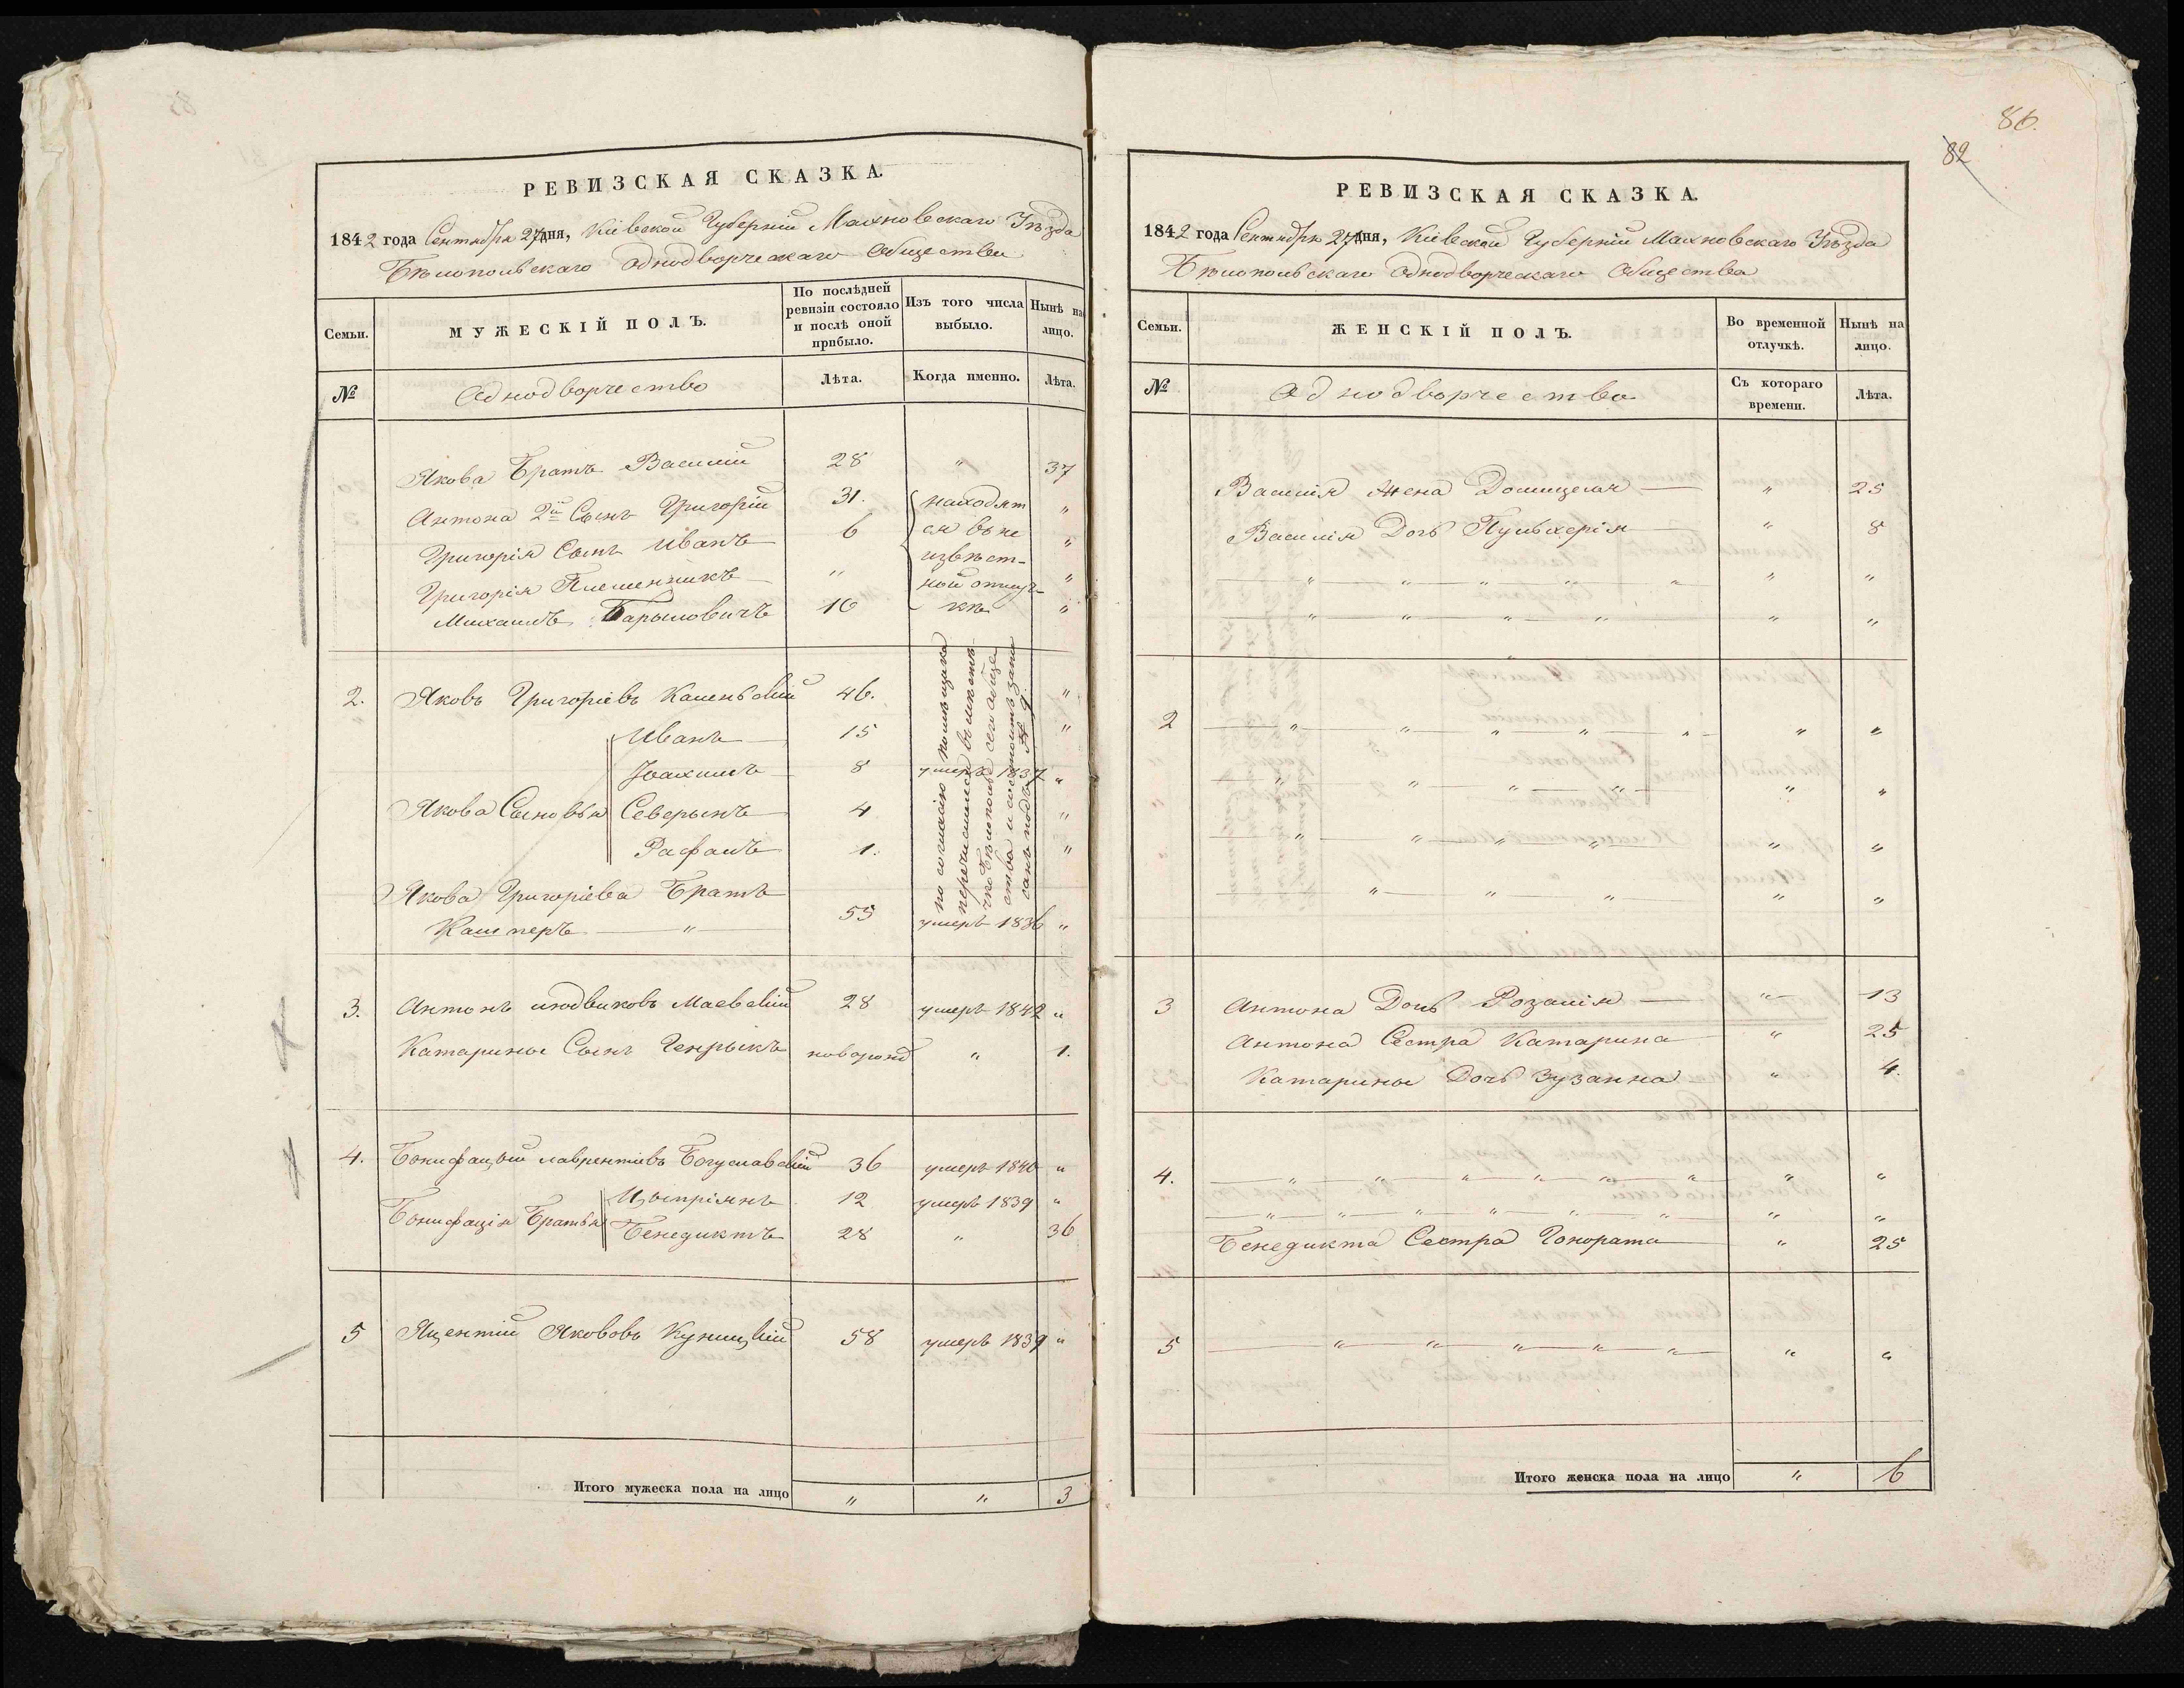 РЕВИЗСКАЯ СКАЗКА.
1842 года Сентября 27 дня, Кіевской Губерніи Махновскаго Уѣзда
Бѣлопольскаго однодворческаго Общества
Семьи.
МУЖЕСКІЙ ПОЛЪ.
По послѣдней ревизіи состояло и послѣ оной прибыло.
Изъ того числа выбыло.
Нынѣ на лицо.
№
Однодворчество
Лѣта.
Когда именно.
Лѣта.
Якова Братъ Василій 28 " 37
Антона 2й Сынъ Григорій 31. находят "
Григорія Сынъ Иванъ 6 ся въ не "
извѣст-
Григорія Племенникъ " ной отлуч- "
Михаилъ Барыловичъ 10 кѣ "
2. Яковъ Григоріевъ Каменьскій 46. "
Иванъ 15 "
Іоахимъ 8 умеръ 1837 "
Якова Сыновья Северынъ 4 "
Рафалъ 1. "
по согласію помѣщика
перечислился въ мѣстѣ-
чко Бѣлополье сего обще
ства и состоитъ запи
санъ подъ № 9.
Якова Григоріева Братъ
Кашперъ " 55 умеръ 1836 "
3. Антонъ людвиковъ Маевскій 28 умеръ 1842 "
Катарины Сынъ Генрыкъ новорожд " 1.
4. Бонифацый лаврентіевъ Богуславскій 36 умеръ 1840 "
Бонифація Братья Цыпріянъ 12 умеръ 1839 "
Бенедиктъ 28 " 36
5 Яцентій Яковъ Куницкій 58 умеръ 1839 "
Итого мужеска пола на лицо " " 3
86.
82
РЕВИЗСКАЯ СКАЗКА.
1842 года Сентября 27 дня, Кіевской Губерніи Махновскаго Уѣзда
Бѣлопольскаго Однодворческаго Общества
Семьи.
ЖЕНСКІЙ ПОЛЪ.
Во временной отлучкѣ.
Нынѣ на лицо.
№
Однодворчество
Съ котораго времени.
Лѣта.
Василія Жена Домицеля " 25
Василія Дочь Пульхерія " 8
" " " " " " "
" " " " " "
2 " " " " " " "
" " " " " "
" " " " " "
" " " " "
3 Антона Дочь Розалія " 13
Антона Сестра Катарина " 25
Катарины Дочь Зузанна " 4.
4. " " " " " " " "
" " " " " " " "
Бенедикта Сестра Гонората " 25
5 " " " " " " "
Итого женска пола на лицо " 6